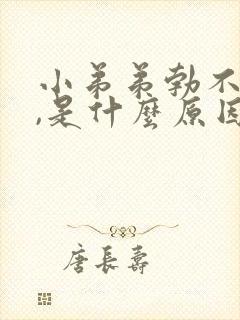 小弟弟勃不
,是什麼原因
唐長壽